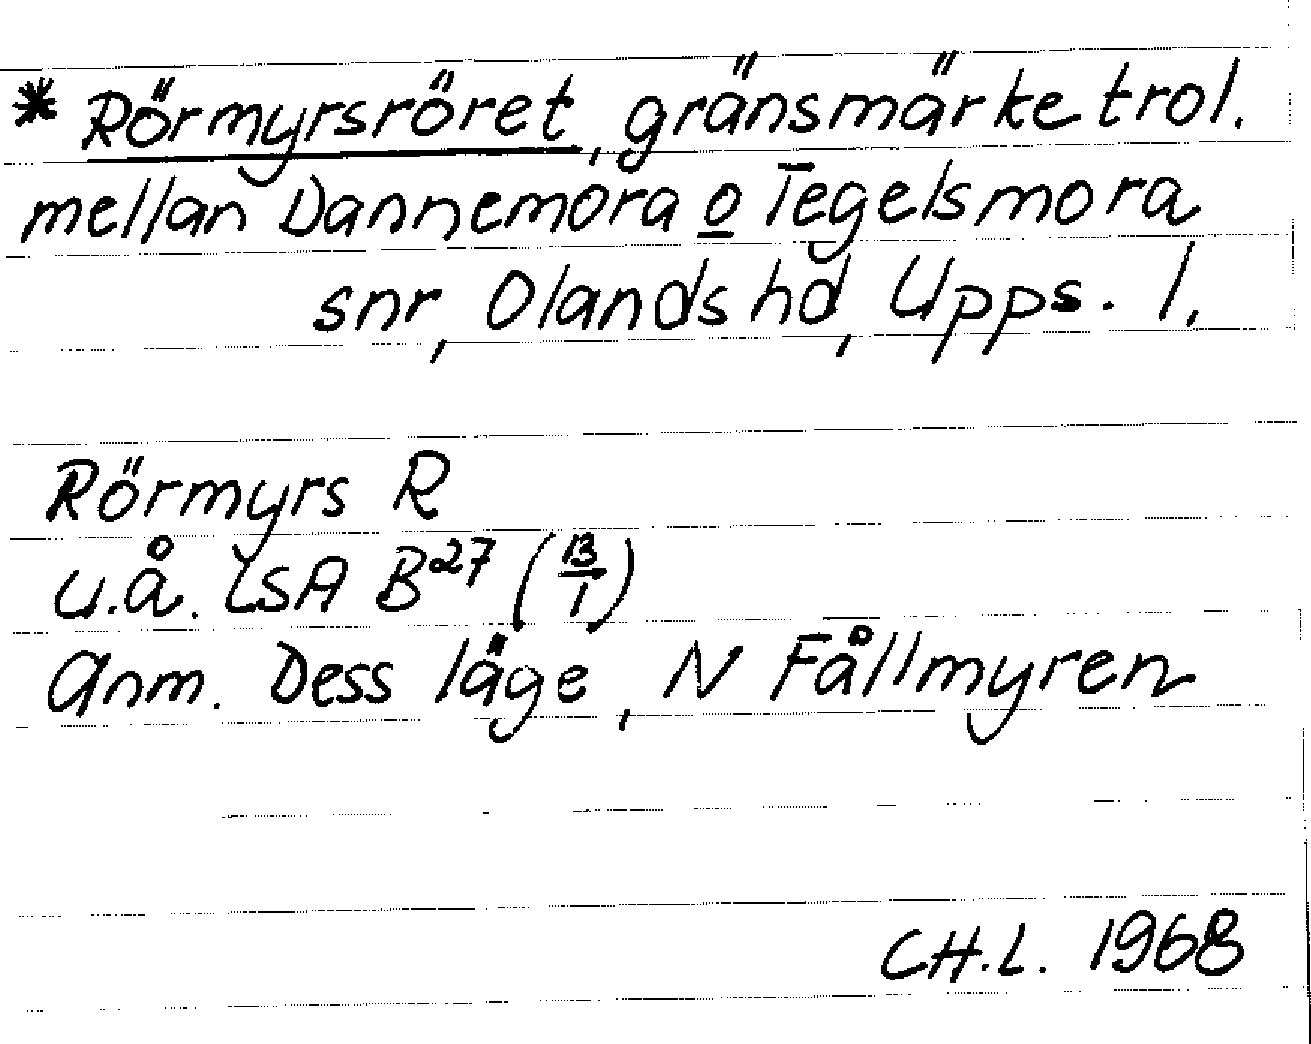 * Rörmyrsröret, gränsmärke trol.
mellan Dannemora o Tegelsmora
snr, Olands hd, Upps. l.
Rörmyrs R
u.å. LSA B27 (13/1)
Anm. Dess läge, N Fållmyren
CH.L. 1968